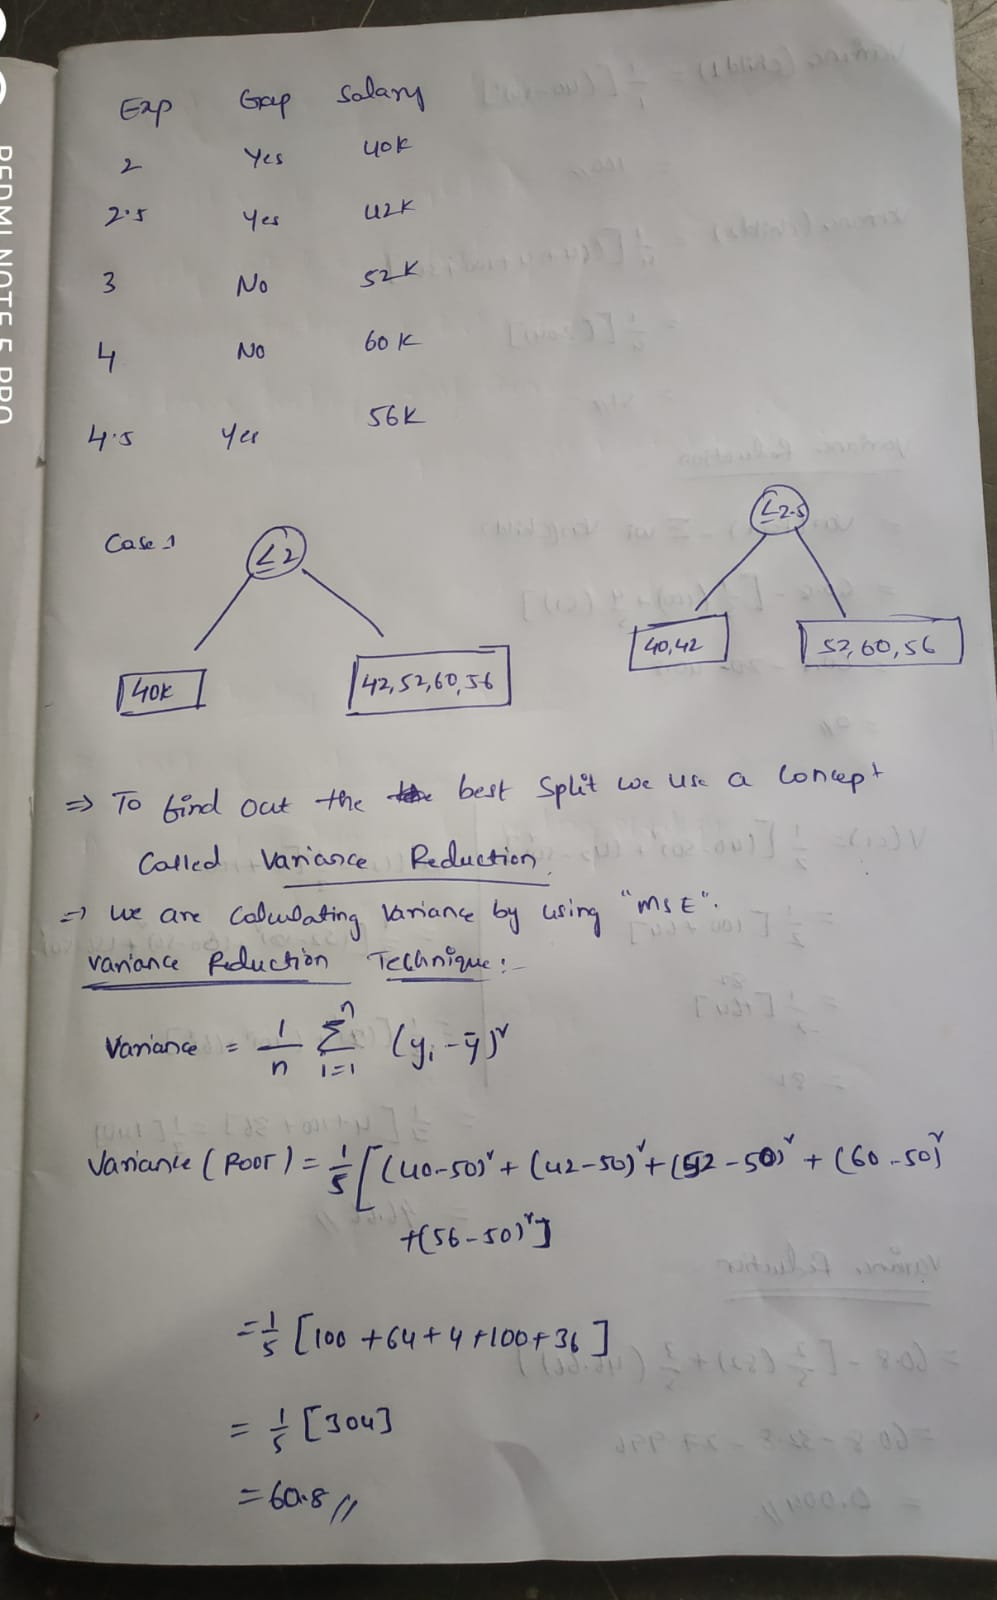 Exp Gap Salary
2 Yes 40K
2.5 Yes 42K
3 No 52K
4 No 60K
4.5 Yes 56K
Case 1
≤2
40K
42,52,60,56
≤2.5
40,42
52,60,56
⇒ To find out the best Split we use a Concept
Called Variance Reduction.
⇒ We are Calculating Variance by using "MSE".
Variance Reduction Technique:-
Variance = 1/n Σ i=1 n (yi - ȳ)²
Variance (ROOT) = 1/5 [(40-50)² + (42-50)² + (52-50)² + (60-50)²
+(56-50)²]
= 1/5 [100 +64+4+100+36]
= 1/5 [304]
= 60.8 //
REDMI NOTE 5 PRO